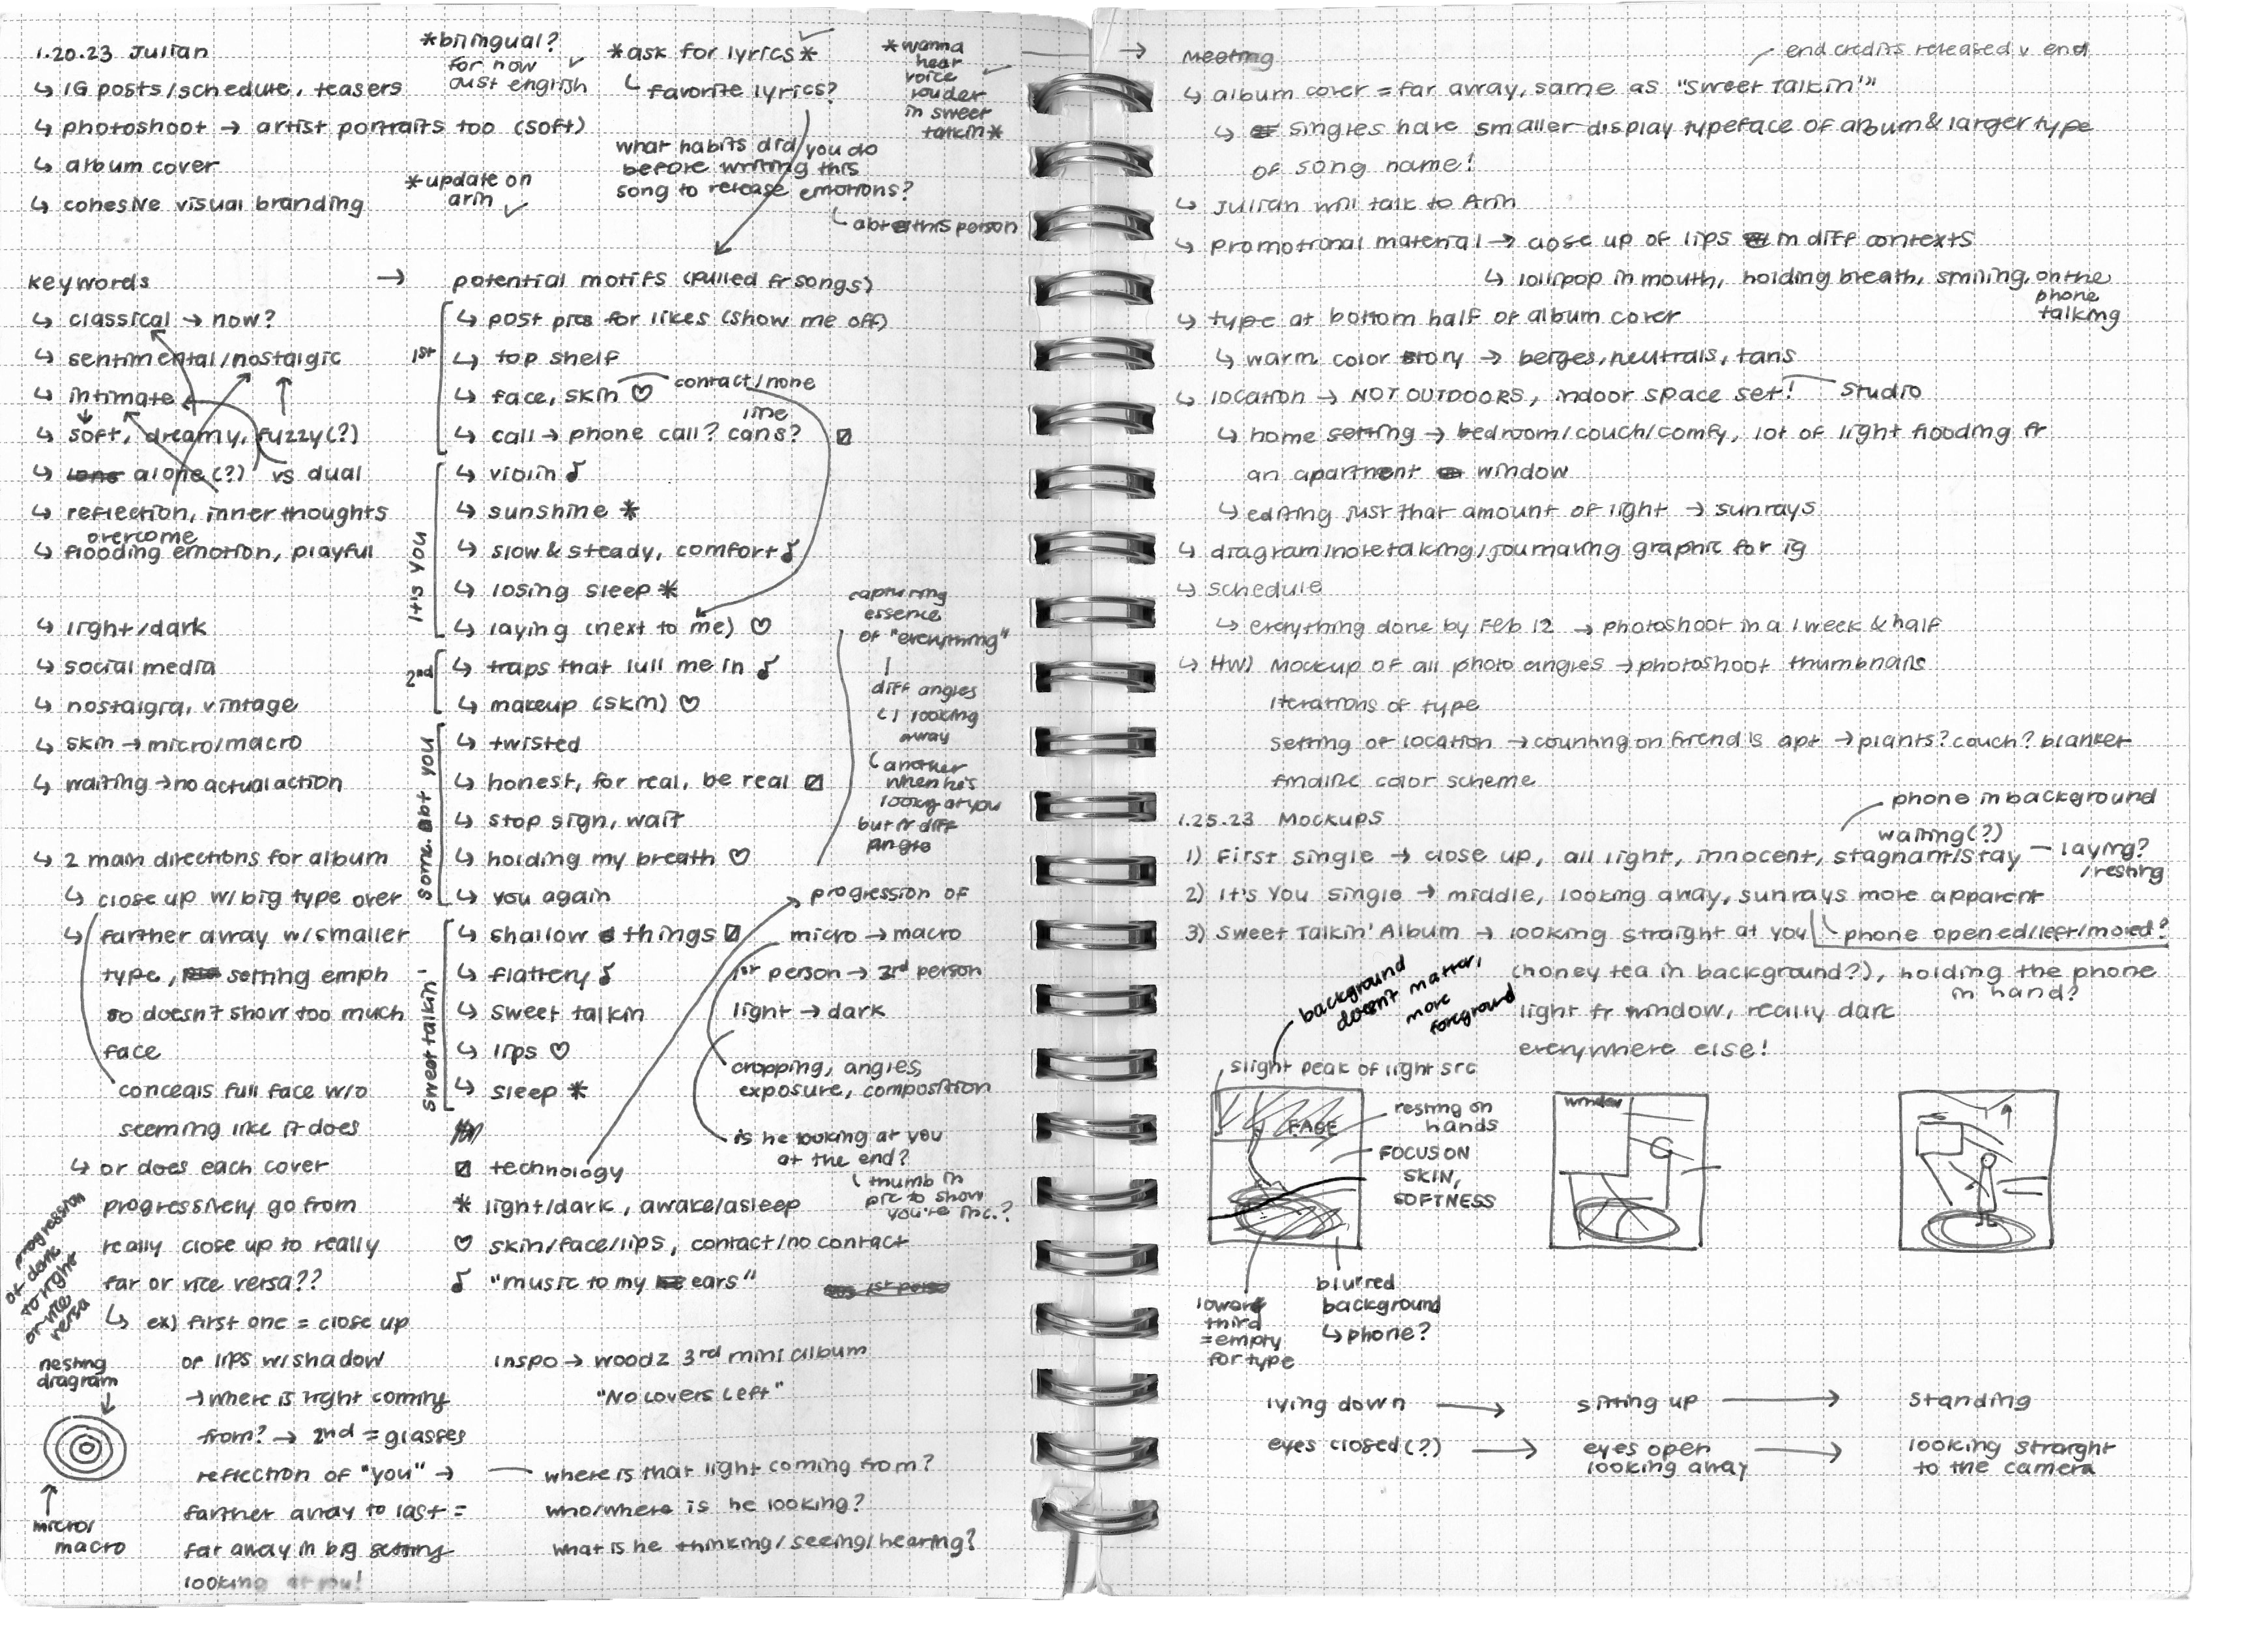 1.20.23 Julian
↳ IG posts/schedule, teasers
↳ photoshoot → artist portraits too (soft)
↳ album cover
↳ cohesive visual branding
*bilingual?
for now
just english
*update on
arin
*ask for lyrics*
↳ favorite lyrics?
what habits did you do
before writing this
song to release emotions?
abt this person
*wanna
hear
voice
louder
in sweet
talkin*
keywords →
↳ classical → now?
↳ sentimental/nostalgic
↳ intimate
↳ soft, dreamy, fuzzy(?)
↳ alone(?) vs dual
↳ reflection, inner thoughts
overcome
↳ flooding emotion, playful
↳ light/dark
↳ social media
↳ nostalgia, vintage
↳ skin → micro/macro
↳ waiting → no actual action
↳ 2 main directions for album
↳ close up w/ big type over
↳ farther away w/ smaller
type, setting emph
so doesn't show too much
face
conceals full face w/o
seeming like it does
↳ or does each cover
progressively go from
really close up to really
far or vice versa??
↳ ex) first one = close up
of lips w/ shadow
→ where is light coming
from? → 2nd = glasses
reflection of "you" →
farther away to last =
far away in big setting
looking at you!
progression
of dark
to light
or vice
versa
nesting
diagram
micro/
macro
potential motifs (pulled fr songs)
1st
↳ post pics for likes (show me off)
↳ top shelf
↳ face, skin ♡ contact/none
line
↳ call → phone call? cans?
it's you
↳ violin ♪
↳ sunshine *
↳ slow & steady, comfort ♪
↳ losing sleep *
↳ laying (next to me) ♡
2nd
↳ traps that lull me in ♪
↳ makeup (skin) ♡
some. abt you
↳ twisted
↳ honest, for real, be real
↳ stop sign, wait
↳ holding my breath ♡
↳ you again
sweet talkin'
↳ shallow things
↳ flattery ♪
↳ sweet talkin
↳ lips ♡
↳ sleep *
technology
* light/dark, awake/asleep
♡ skin/face/lips, contact/no contact
♪ "music to my ears"
1st person
inspo → woodz 3rd mini album
"No Lovers Left"
where is that light coming from?
who/where is he looking?
what is he thinking/seeing/hearing?
capturing
essence
of "everything"
diff angles
↳ 1 looking
away
another
when he's
looking at you
but fr diff
angle
progression of
micro → macro
1st person → 3rd person
light → dark
cropping, angles,
exposure, composition
is he looking at you
at the end?
thumb in
pic to show
you're inc.?
→ Meeting
end credits released v end
↳ album cover = far away, same as "Sweet Talkin'"
↳ singles have smaller display typeface of album & larger type
of song name!
↳ Julian will talk to Arin
↳ promotional material → close up of lips in diff contexts
↳ lollipop in mouth, holding breath, smiling, on the
phone
talking
↳ type at bottom half of album cover
↳ warm color story → beiges, neutrals, tans
↳ location → NOT OUTDOORS, indoor space set! studio
↳ home setting → bedroom/couch/comfy, lot of light flooding fr
an apartment window
↳ editing just that amount of light → sunrays
↳ diagram/notetaking/journaling graphic for ig
↳ schedule
↳ everything done by Feb 12 → photoshoot in a 1 week & half
↳ HW) Mockup of all photo angles → photoshoot thumbnails
iterations of type
setting of location → counting on friend's apt → plants? couch? blanket
finalize color scheme
1.25.23 Mockups
phone in background
waiting(?)
1) First single → close up, all light, innocent, stagnant/stay — laying?
/resting
2) It's You single → middle, looking away, sunrays more apparent
3) Sweet Talkin' Album → looking straight at you
phone opened/left/moved?
(honey tea in background?), holding the phone
in hand?
light fr window, really dark
everywhere else!
background
doesn't matter,
more
foreground
slight peak of light src
FACE
resting on
hands
FOCUS ON
SKIN,
SOFTNESS
lower
third
= empty
for type
blurred
background
↳ phone?
window
lying down → sitting up → standing
eyes closed(?) → eyes open → looking straight
looking away
to the camera